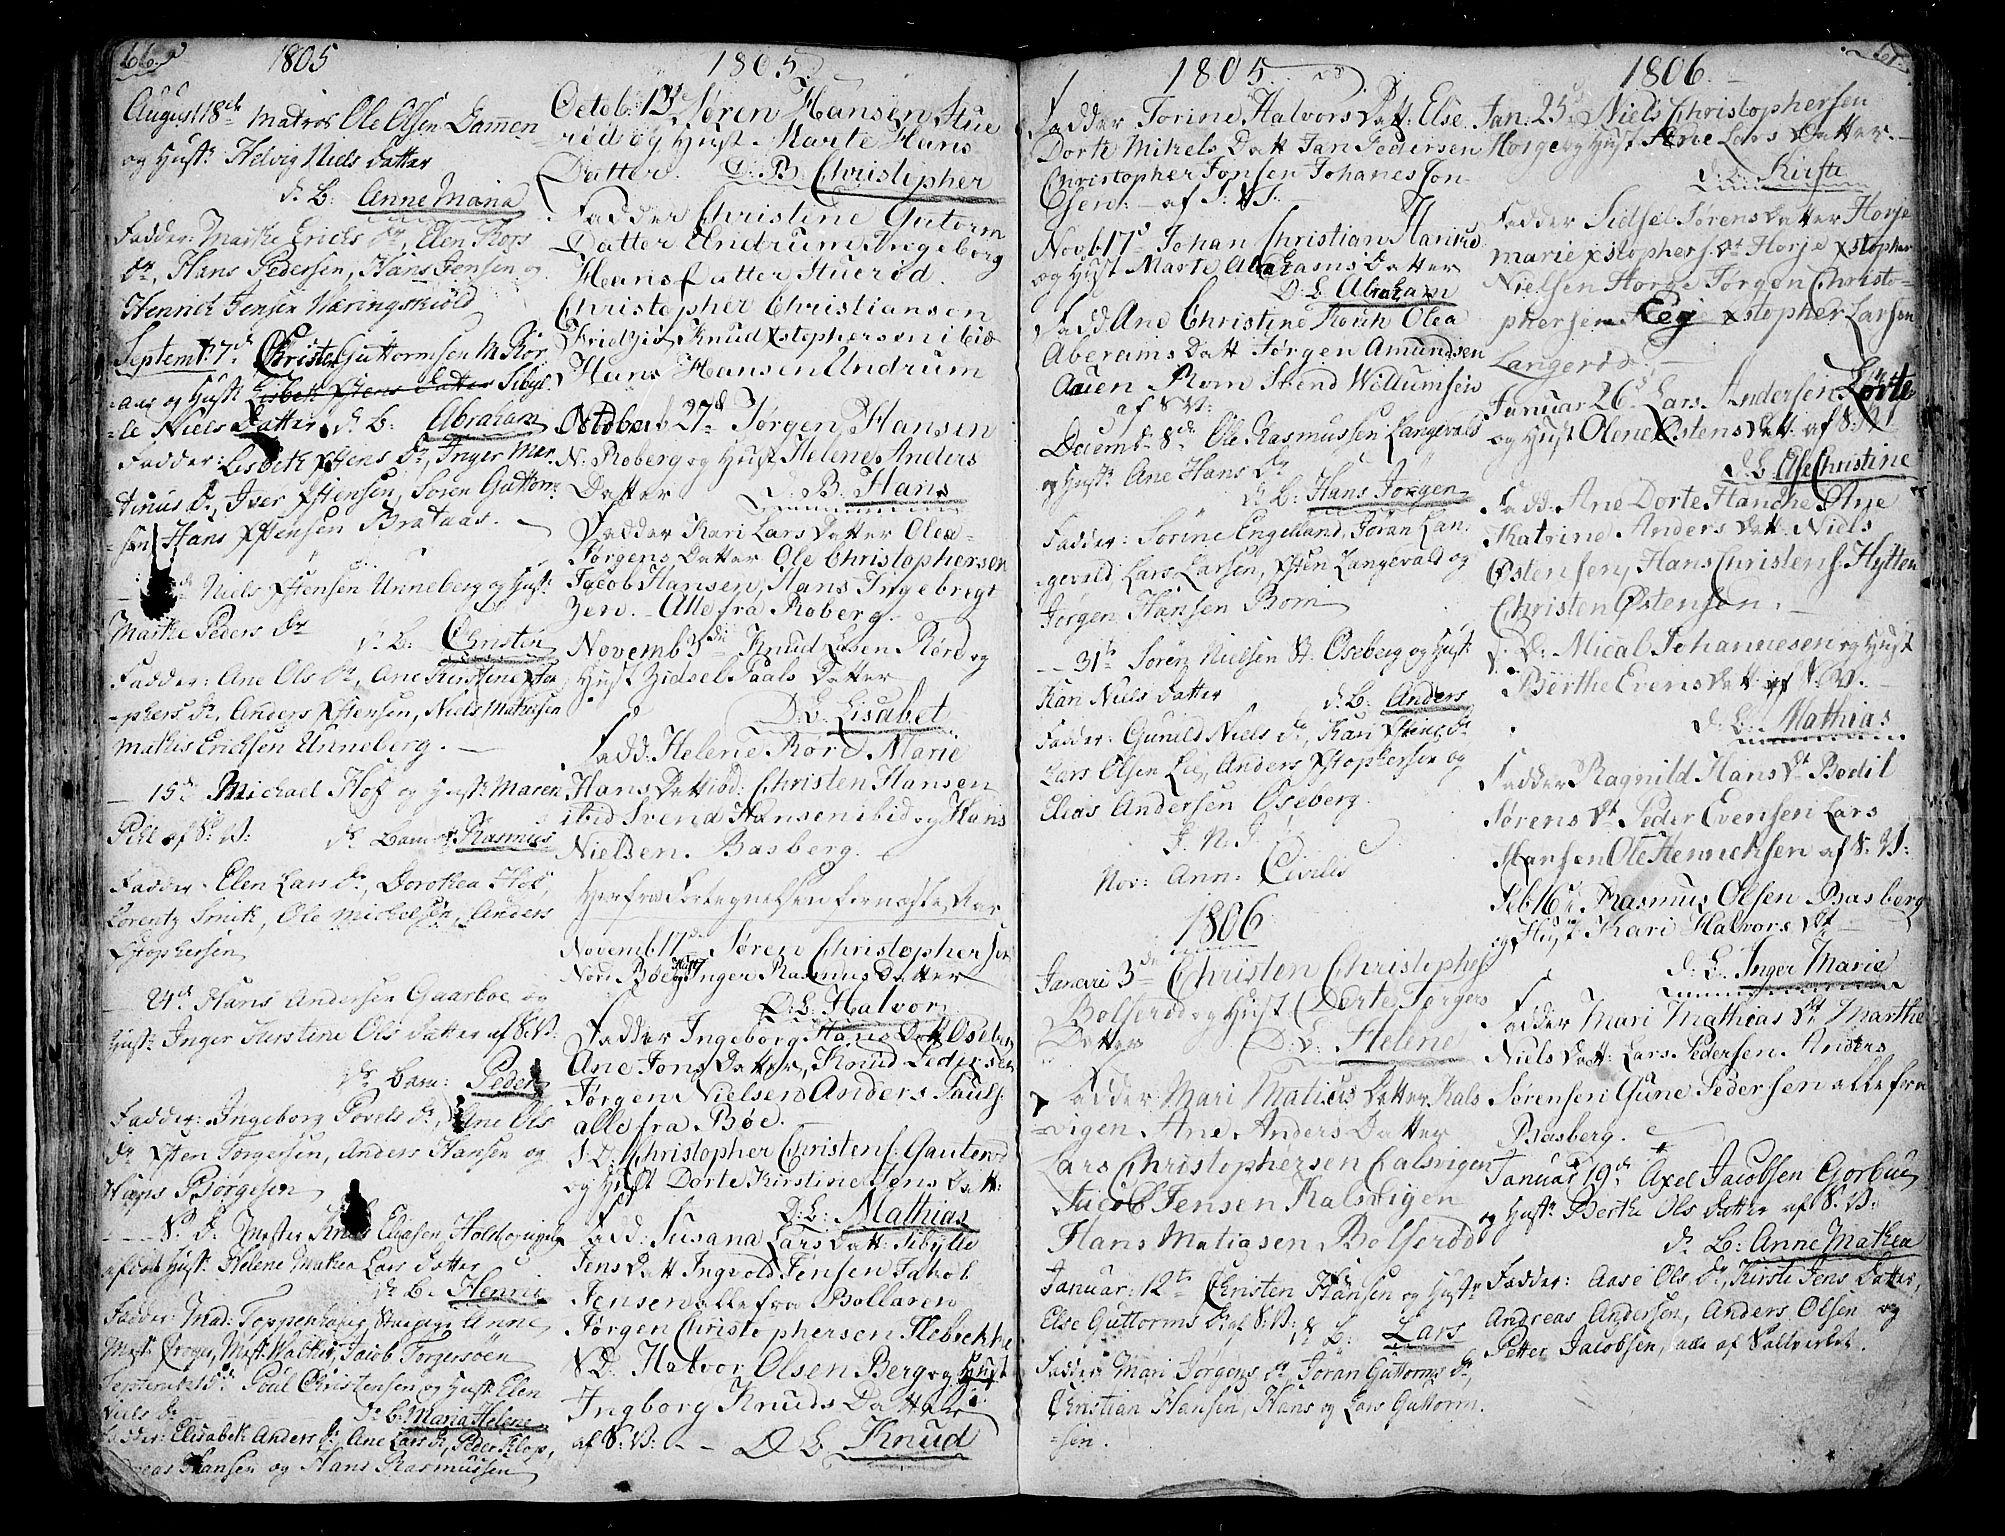 66
1805
August 18de Matros Ole Olsen Dammen
og Hust: Helvig Niels datter
d. B: Anne Maria
Fadder: Marthe Erichs Dr, Elen Klops
Dr, Hans Pedersen, Hans Jensen og
Henrich Jensen Væringskiold
Septemb: 7de Christen Guttormsen
og Hust: Lisbeth datter Siby
le Niels Datter d. B: Abraham
Fadder: Lisbeth Dr, Inger Mar
tinus Dr, Iver Xstensen, Søren Guttorm
sen Hans Xstensen Brataas.
Niels Xstensen Unneberg og Hust:
Marthe Peders Dr d. B: Christen
Fadder: Ane Ols Dr, Ane Kirstine Xsto
phers Dr, Anders Xstensen, Niels Mathisen
Mathis Erichsen Unneberg.
15de Michael Hof og Hust: Maren
Pihl af S: V: Ds Barn Rasmus
Fadder: Elen Lars Dr, Dorothea Hof,
Lorentz Smith, Ole Michelsen, Anders
Xstophersen
24de Hans Andersen Gaarboe og
Hust: Inger Kirstine Ols datter af S: V:
Ds Barn: Peder
Fadder: Ingeborg Povels Dr, Ane Ols
Dr Xsten Torgersen, Anders Hansen og
Hans Borgesen
S. D. Mester Knud Eliasen
Hust: Helene Mathea Lars datter
d. B. Henri
Fadder: Mad: Anne
Mest: Mest: Walther, Jacob Torgersøen
Poul Christensen og Hust: Elen
Niels Dr Ds B: Maria Helene
Fadder: Elisabeth Anders Dr, Ane Lars Dr, Peder Klop,
Hansen og Hans Rasmussen
1805
Octob: 13de Søren Hansen Stue
rød og Hust Marte Hans
Datter. D: B: Christopher
Fadder Christine Gutorm
Datter Undrum, Ingeborg
Hans Datter Stuerød.
Christopher Christiansen
Knud Xstophersen ibid
Hans Hansen Undrum
Octoberb 27de Jørgen Hansen
N: Roberg og Hust Helene Anders
Datter D: B: Hans
Fadder Kari Lars Datter Olea
Jørgens Datter Ole Christophersen
Jacob Hansen, Hans Ingebrigt
zen. Alle fra Roberg.
Novemb 3die Knud Olsen Røre og
Hust Zidsel Paals Datter
D: B: Lisabet
Fadd: Helene Røre Marie
Hans Datt ibd: Christen Hansen
ibid Svend Hansen ibid og Hans
Nielsen Basberg.
Herfra
Novemb 17de Søren Christophersen
Nore Bøe og Hust Inger Rasmus Datter
D: B: Halvor
Fadder Ingeborg Hans Datt Oseberg
Ane Jons Datter, Knud Pedersen
Jørgen Nielsen Anders Pauls:
alle fra Bøe.
S: D: Christopher Christens: Gauterød
og Hust Dorte Kirstine Jens Datt:
D: B: Mathias
Fadd: Susana Lars Datt: Sibylle
Jens Datt Ingvold Jensen Jakob
Jensen alle fra Bollaren
Jørgen Christophersen Klebekke
S D: Halvor Olsen Berg og Hust
Ingborg Knuds Datter
af S: V: D B Knud
1805
Fadder Torine Halvors Datt: Else
Dorte Mikels Datt Jan Pedersen
Christopher Jonsen Johanes Jon
sen. af S: V:
Novb. 17de Johan Christian Hanrid
og Hust Marte Abrahams Datter
D: B: Abraham
Fadd Ane Christine Olea
Aberams Datt Jørgen Amundsen
Auen Rom Svend Willumsen
af S: V:
Decemb 8de Ole Rasmussen Langevald
og Hust: Ane Hans Dr
d. B: Hans Jørgen
Fadder: Sørine Engelland, Jøran Lan
gevald, Lars Larsen, Xsten Langevald og
Jørgen Hansen Rom
31te Søren Nielsen St. Oseberg og Hust:
Kari Niels datter d. B: Anders
Fadder: Gunild Niels Dr, Kari Xstens Dr
Lars Olsen Lie, Anders Xstophersen og
Elias Andersen Oseberg.
I. N. I.
Nov: Ann: Civilis
1806
Janevri 3de Christen Christophers
Bolserød og Hust Dorte Torgers
Datter D: B: Helene
Fadder Mari Matius Datter Kals
vigen Ane Anders Datter
Lars Christophersen Calsvigen
Jacob Jensen Kalsvigen
Hans Matiasen Bolserød
Januar: 12te Christen Hansen og Hust:
Else Guttorms Dr af S: V: d. B: Lars
Fadder Mari Jørgens Dr, Jøran Guttorms Dr,
Christian Hansen, Hans og Lars Guttorm
sen.
1806
Jan: 25de Niels Christophersen
Horge og Hust Ane Lars Datter
d: B: Kirste
Fadder Sidsel Sørens Datter Horje
Marie Xstophers: Dt Horje Xstopher
Nielsen Horge Jørgen Christo
phersen Xstopher Larsen
Langerød
Januar 26de Lars Andersen Lorte
og Hust Olene Østens Datt: af S: V:
D. B. Else Christine
Fadd: Ane Dorte Hanche Ane
Katrine Anders Datt Niels
Østensen, Hans Christens: Hytten
Christen Østensen.
S: D: Mical Johannesen og Hust
Berthe Evens Datt af S: V:
d. B: Mathias
Fadder Ragnild Hans Dt Bodil
Sørens Dt Peder Evensen Lars
Hansen Ole Henrichsen af S: V:
Feb 16de Rasmus Olsen Basberg
og Hust Kari Halvors Dt
d: B. Inger Marie
Fadder Mari Mathias Dt Marthe
Niels Datt: Lars Pedersen Anders
Sørensen Gune Pedersen alle fra
Basberg.
Januar 19de Axel Jacobsen Gorbue
og Hust: Berthe Ols datter af S: V:
Ds B: Anne Mathea
Fadder: Aase Ols Dr, Kirsti Jens datter,
Andreas Andersen, Anders Olsen og
Petter Jacobsen, alle af Saltverket.